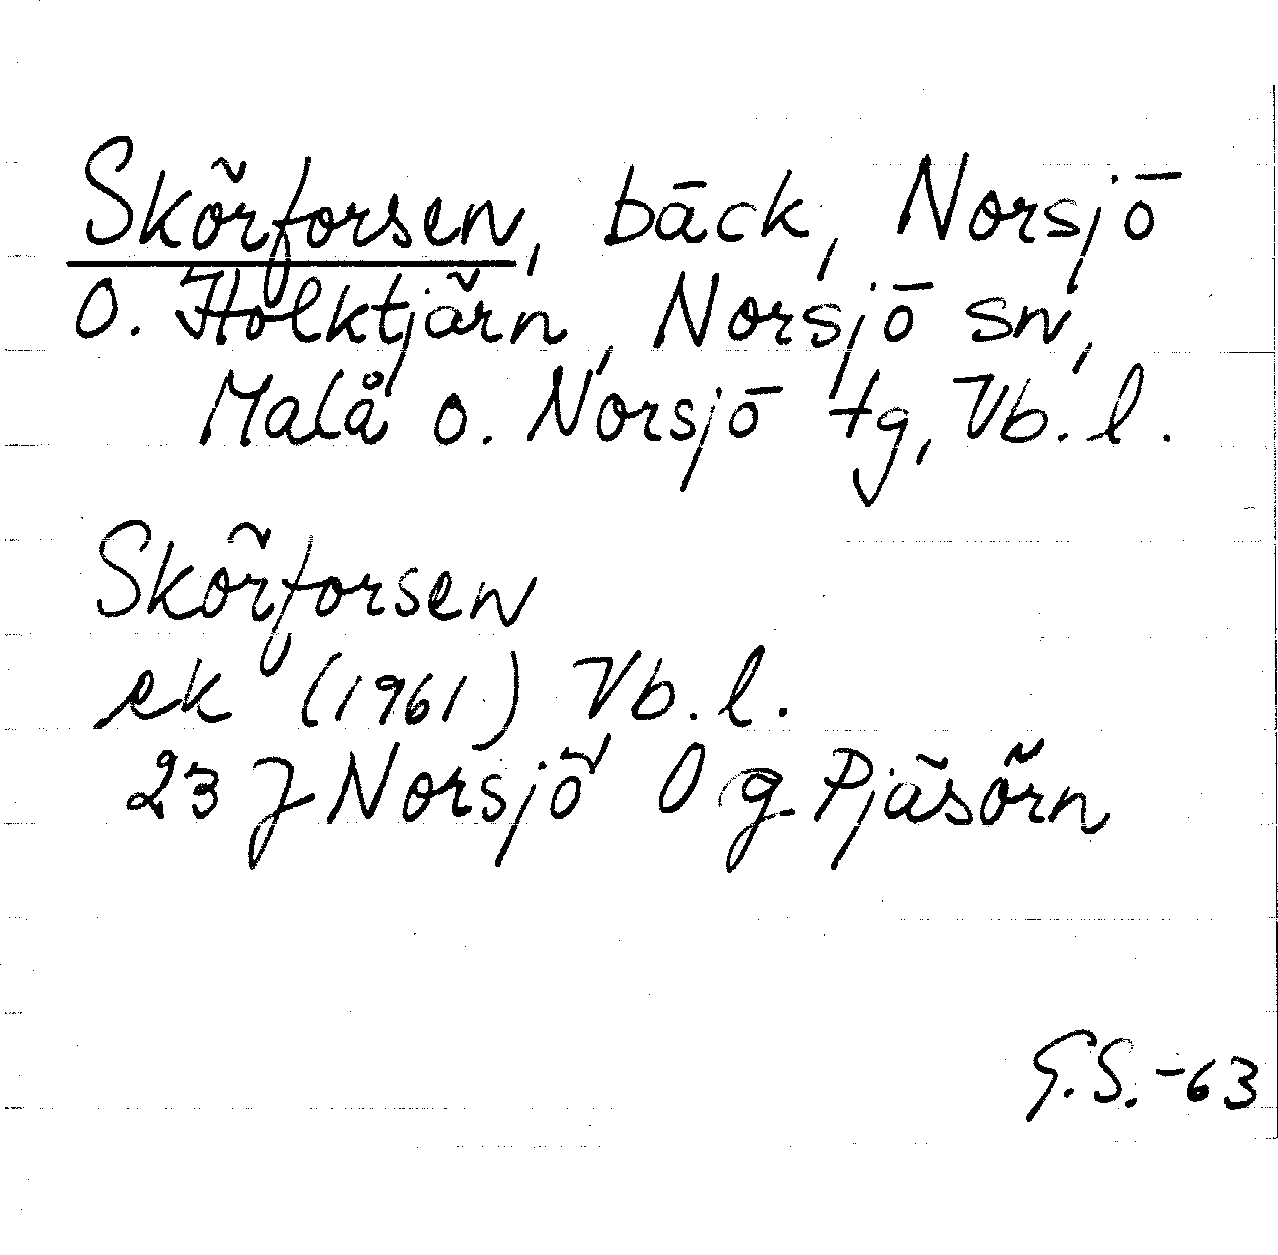 Skörforsen, bäck, Norsjö
o. Holktjärn, Norsjö sn,
Malå o. Norsjö tg, Vb. l.
Skörforsen
ek (1961) Vb. l.
23 J Norsjö O g Pjäsörn
G.S. -63